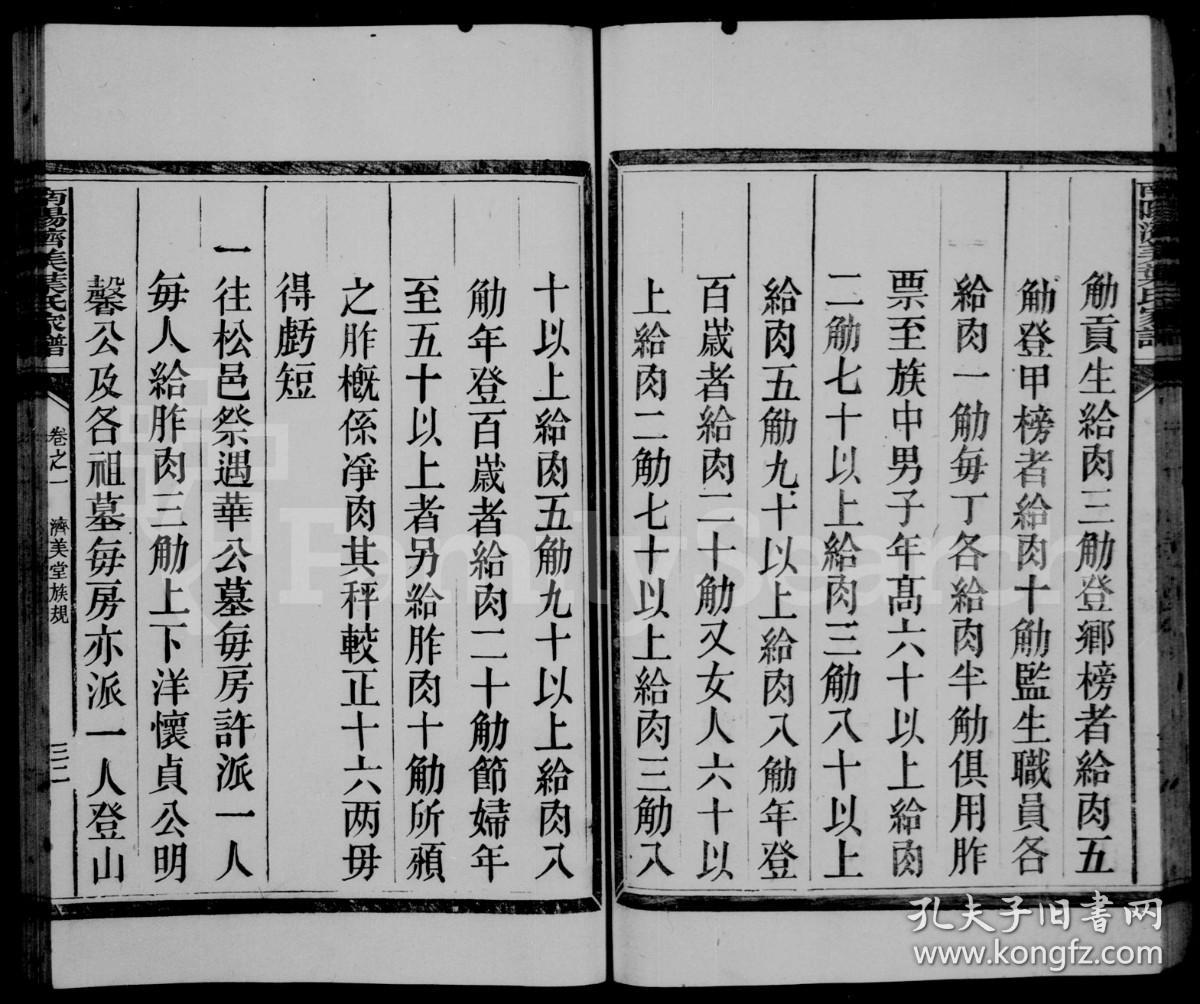 觔貢生給肉三觔登鄉榜者給肉五
觔登甲榜者給肉十觔監生職員各
給肉一觔每丁各給肉半觔俱用胙
票至族中男子年髙六十以上給肉
二觔七十以上給肉三觔八十以上
給肉五觔九十以上給肉八觔年登
百歲者給肉二十觔又女人六十以
上給肉二觔七十以上給肉三觔八
十以上給肉五觔九十以上給肉八
觔年登百歲者給肉二十觔節婦年
至五十以上者另給胙肉十觔所頒
之胙概係凈肉其秤較正十六两毋
得虧短
一往松邑祭遇華公墓每房許派一人
每人給胙肉三觔上下洋懷貞公明
馨公及各祖墓每房亦派一人登山
南陽濟美葉氏家譜
卷之一
濟美堂族規
三二
南陽濟美葉氏家譜
FamilySearch
孔夫子旧书网
www.kongfz.com